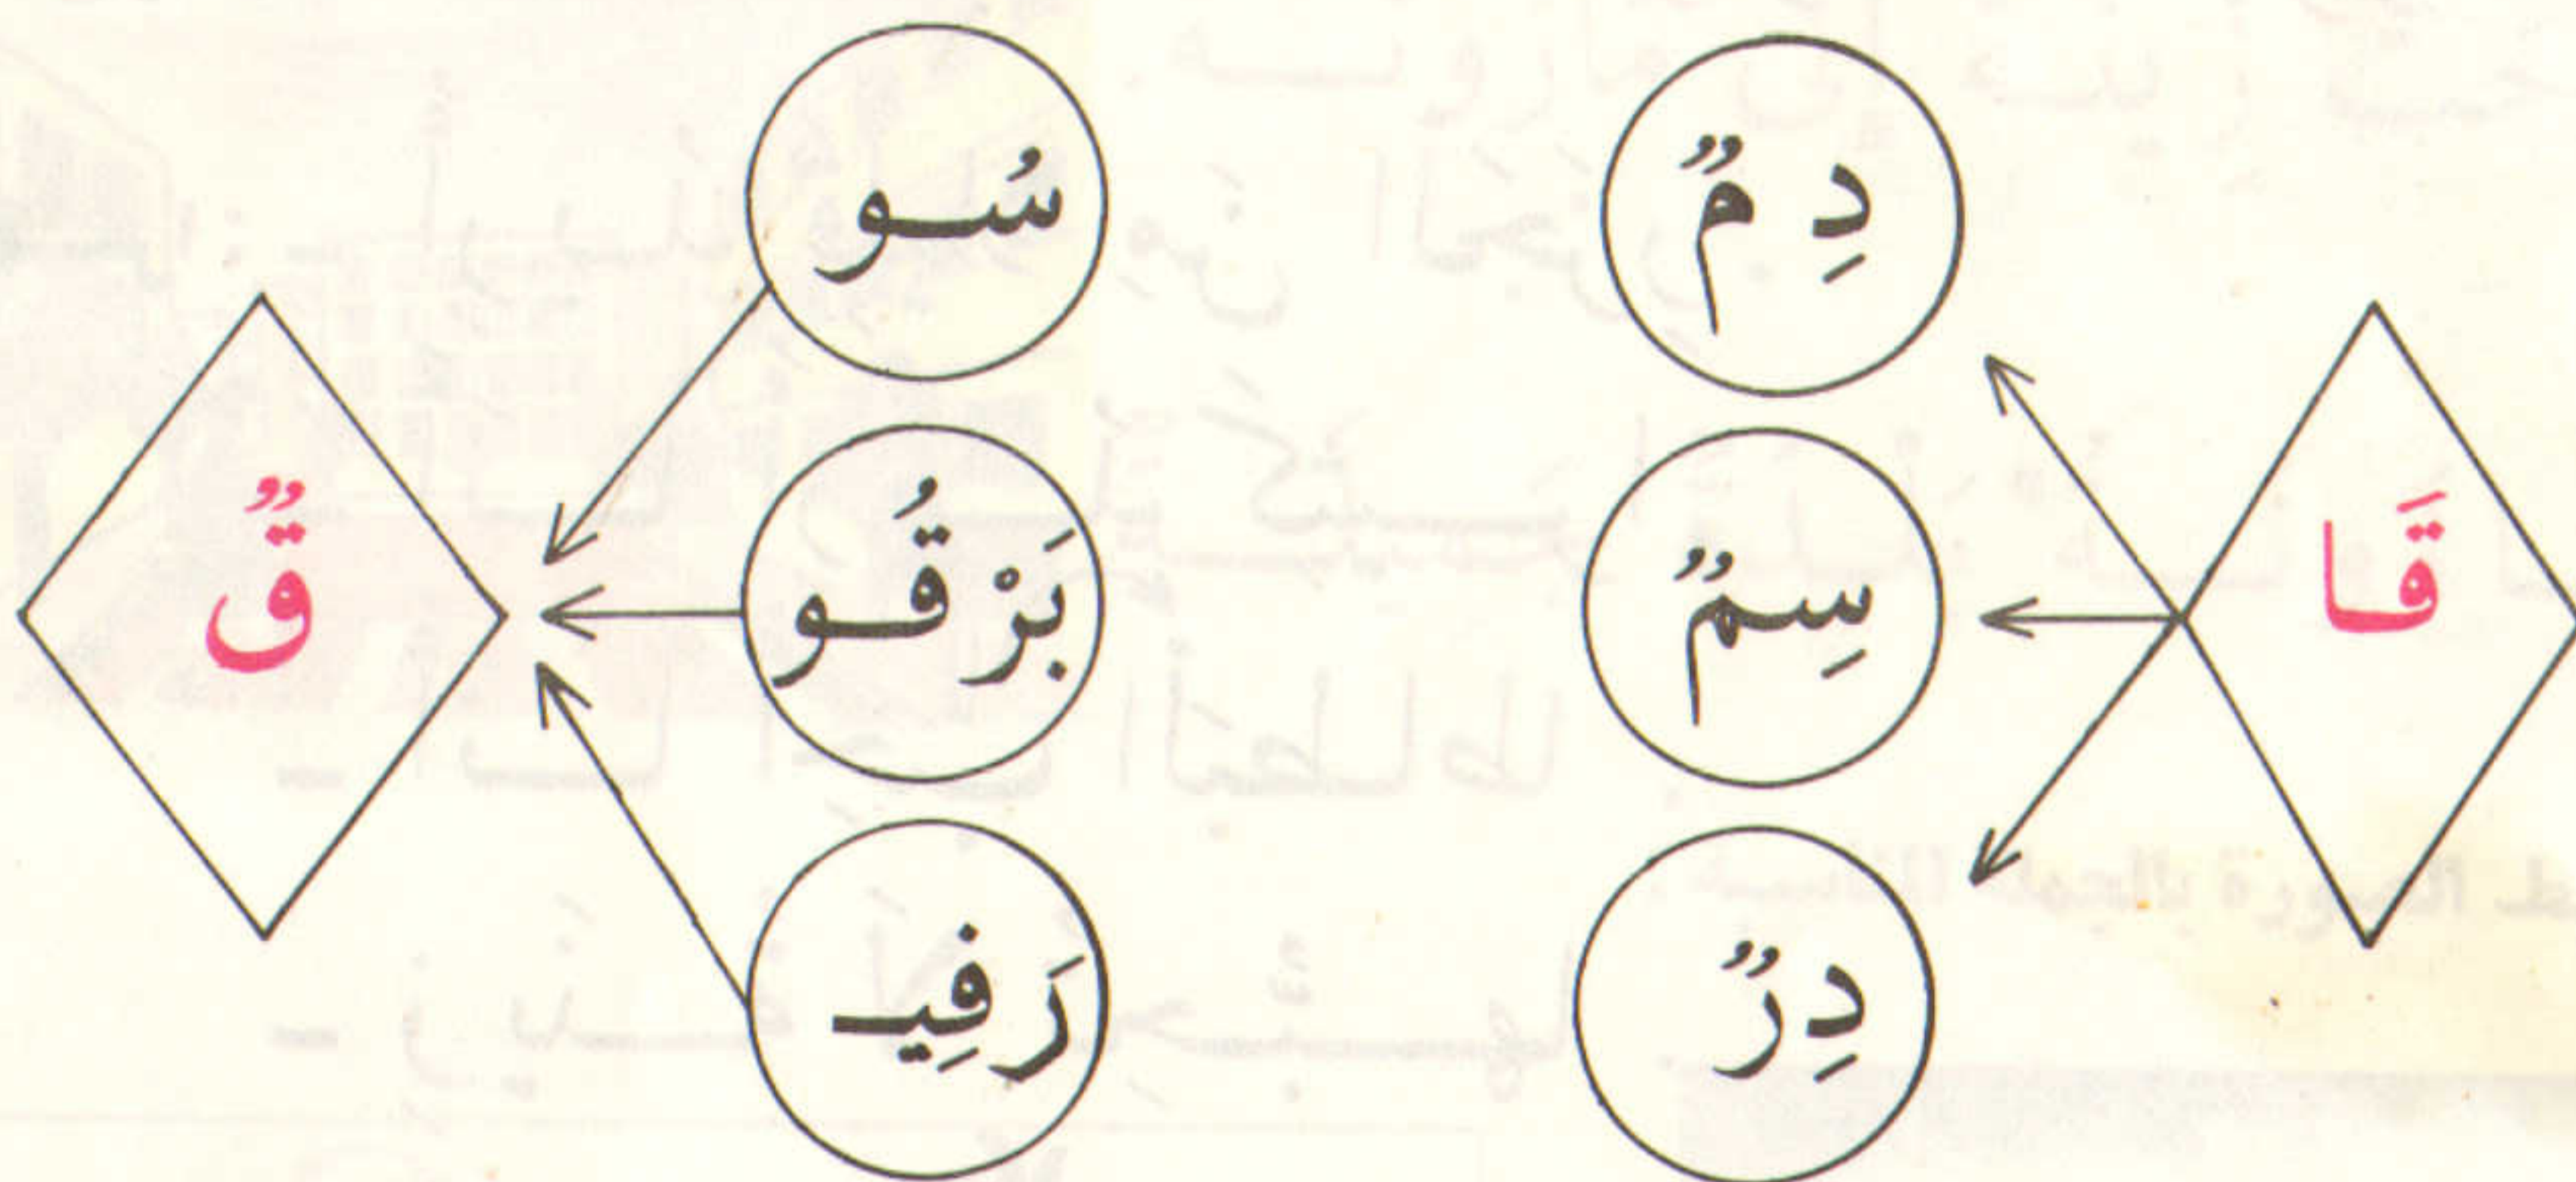 قَا
دِ مٌ
سِمٌ
دِرٌ
سُو
بَرْقُو
رَفِيـ
قٌ